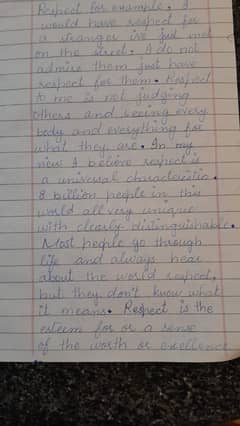 Respect for example. I
would have respect for
a stranger ive just met
on the street. I do not
admire them just have
respect for them. Respect
to me is not judging
others and seeing every
body and everything for
what they are. In my
view I believe respect is
a universal characteristic.
8 billion people in this
world all very unique
with clearly distinguishable.
Most people go through
life and always hear
about the world respect,
but they don't know what
it means. Respect is the
esteem for or a sense
of the worth or excellence